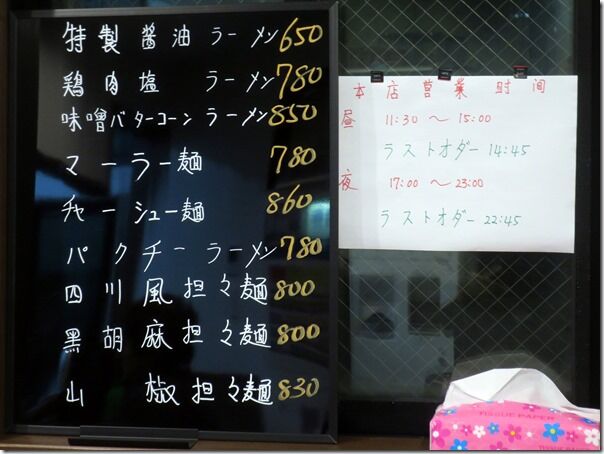 特製醤油ラーメン 650
鶏肉塩 ラーメン 780
味噌バターコーン ラーメン 850
マーラー麺 780
チャーシュー麺 860
パクチーラーメン 780
四川風担々麺 800
黒胡麻担々麺 800
山椒担々麺 830
本店営業时间
昼 11:30 〜 15:00
ラストオダー 14:45
夜 17:00 〜 23:00
ラストオダー 22:45
TISSUE PAPER